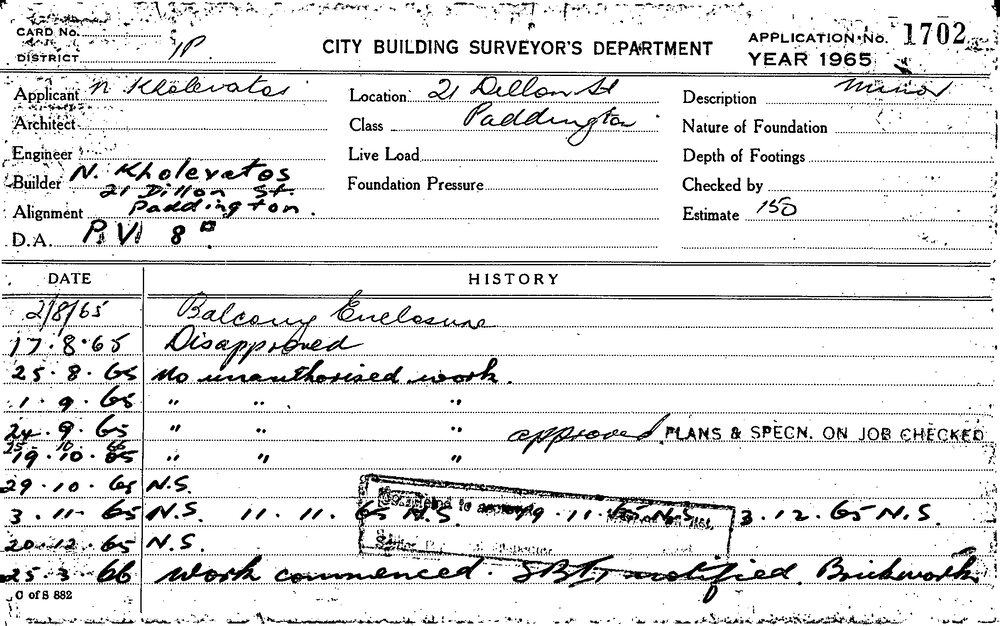 CARD No.
DISTRICT 1P
CITY BUILDING SURVEYOR'S DEPARTMENT
APPLICATION No. 1702
YEAR 1965
Applicant N Kholevatos
Location 21 Dillon St
Description Minor
Architect
Class Paddington
Nature of Foundation
Engineer
Live Load
Depth of Footings
Builder N. Kholevatos
21 Dillon St.
Foundation Pressure
Checked by
Alignment Paddington.
Estimate 150
D.A.
DATE HISTORY
2/8/65 Balcony Enclosure
17.8.65 Disapproved
25.8.65 No unauthorised work.
1.9.65 " " "
24.9.65 " " " approved. PLANS & SPECN. ON JOB CHECKED
19.10.65 " " "
29.10.65 N.S.
3.11.65 N.S. 11.11.65 N.S. 19.11.65 N.S. 3.12.65 N.S.
20.12.65 N.S.
25.3.66 Work commenced. notified. Brickwork
C of S 882